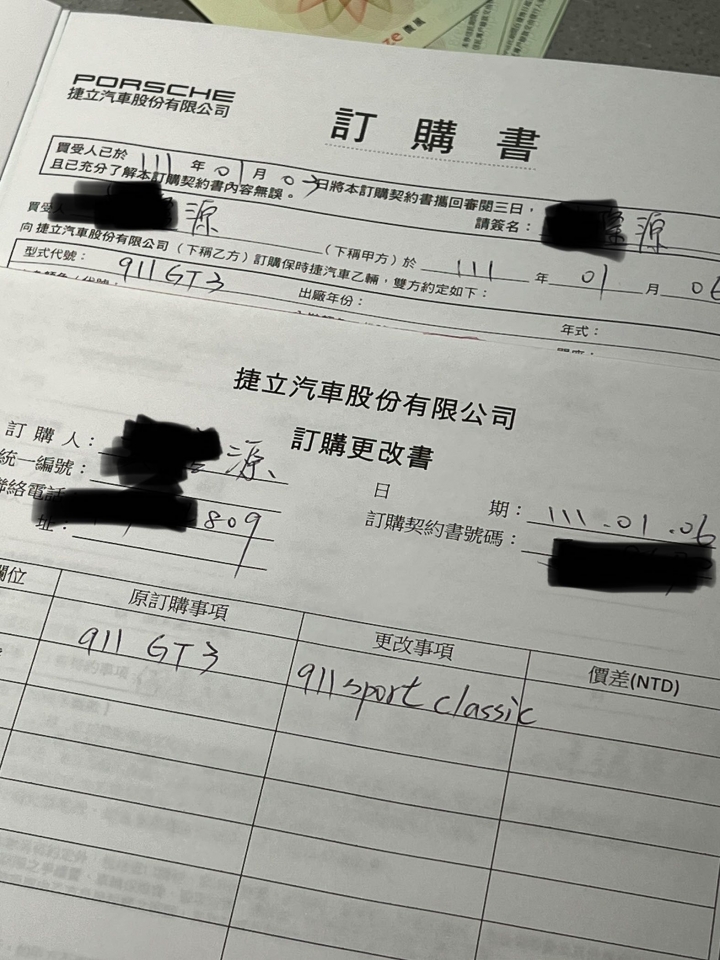 PORSCHE
捷立汽車股份有限公司
訂購書
買受人已於 111 年 01 月 03 日將本訂購契約書攜回審閱三日，
且已充分了解本訂購契約書內容無誤。
請簽名： 源
買受人 源
（下稱甲方）於 111 年 01 月 06
向 捷立汽車股份有限公司（下稱乙方）訂購保時捷汽車乙輛，雙方約定如下：
型式代號： 911 GT3 出廠年份： 年式：
捷立汽車股份有限公司
訂購更改書
訂購人： 源
統一編號：
日期： 111.01.06
聯絡電話 809
訂購契約書號碼：
址：
欄位 原訂購事項 更改事項 價差(NTD)
911 GT3 911 sport classic